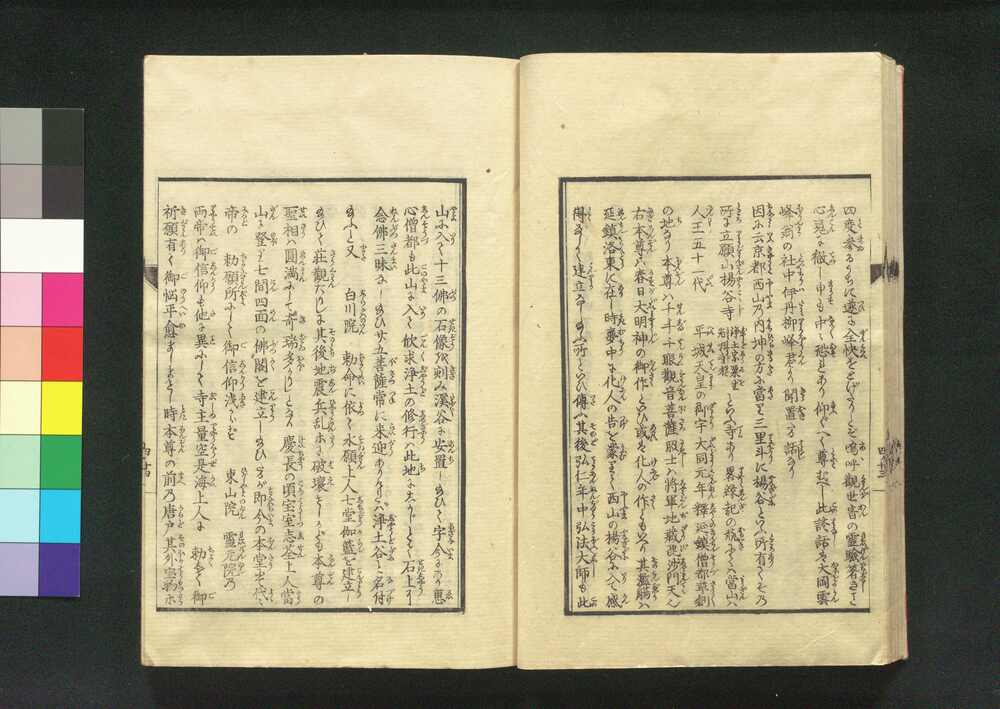 四度参るうちに速に全快をとげたりとぞ嗚呼觀世音の靈驗著きこと
心魂に徹し申も中々恐あり仰ぐべく尊むべし此談話は大岡雲
峰翁の社中伊丹柳峰君より聞置る話なり
因に云京都西山の内坤の方に當て三里斗に楊谷といふ所有てその
所に立願山楊谷寺といふ寺あり畧縁記の中に當山ハ
浄土宗粟生
光明寺
人王五十一代 平城天皇の御宇大同元年釋延鎮僧都草創
の地なり本尊ハ千手千眼觀音菩薩脇士ハ将軍地蔵毘沙門天也
右本尊ハ春日大明神の御作といひ或ハ化人の作ともいへり其濫觴ハ
延鎮洛東に在し時夢中に化人の告を蒙りて西山の楊谷に入て感
得なして建立なし給ふ所といひ傳ふ其後弘仁年中弘法大師も此
山に入て十三佛の石像を刻み溪谷に安置し給ひて宇今にあり惠
心僧都も此山に入て欣求浄土の修行ハ此地にまさりしとて石上に
念佛三昧なし給ひ廿五菩薩常に来迎ありけれハ浄土谷と名付
給ふと又 白川院 勅命に依て永願上人七堂伽藍を建立し
給ひて荘觀たりしに其後地震兵乱ホに破壊せしかども本尊の
聖相ハ圓満にして奇瑞多かりしとなり慶長の頃宝室志荃上人當
山に登り七間四面の佛閣を建立し給ひけるが即今の本堂也代々
帝の 勅願所にして御信仰浅からず 東山院 靈元院の
両帝ハ御信仰も他に異にして寺主量空是海上人に 勅して御
祈願有て御悩平愈ましましけるとぞ時本尊の前の唐戸其外宝物ホ
四ノ十三
四ノ十四